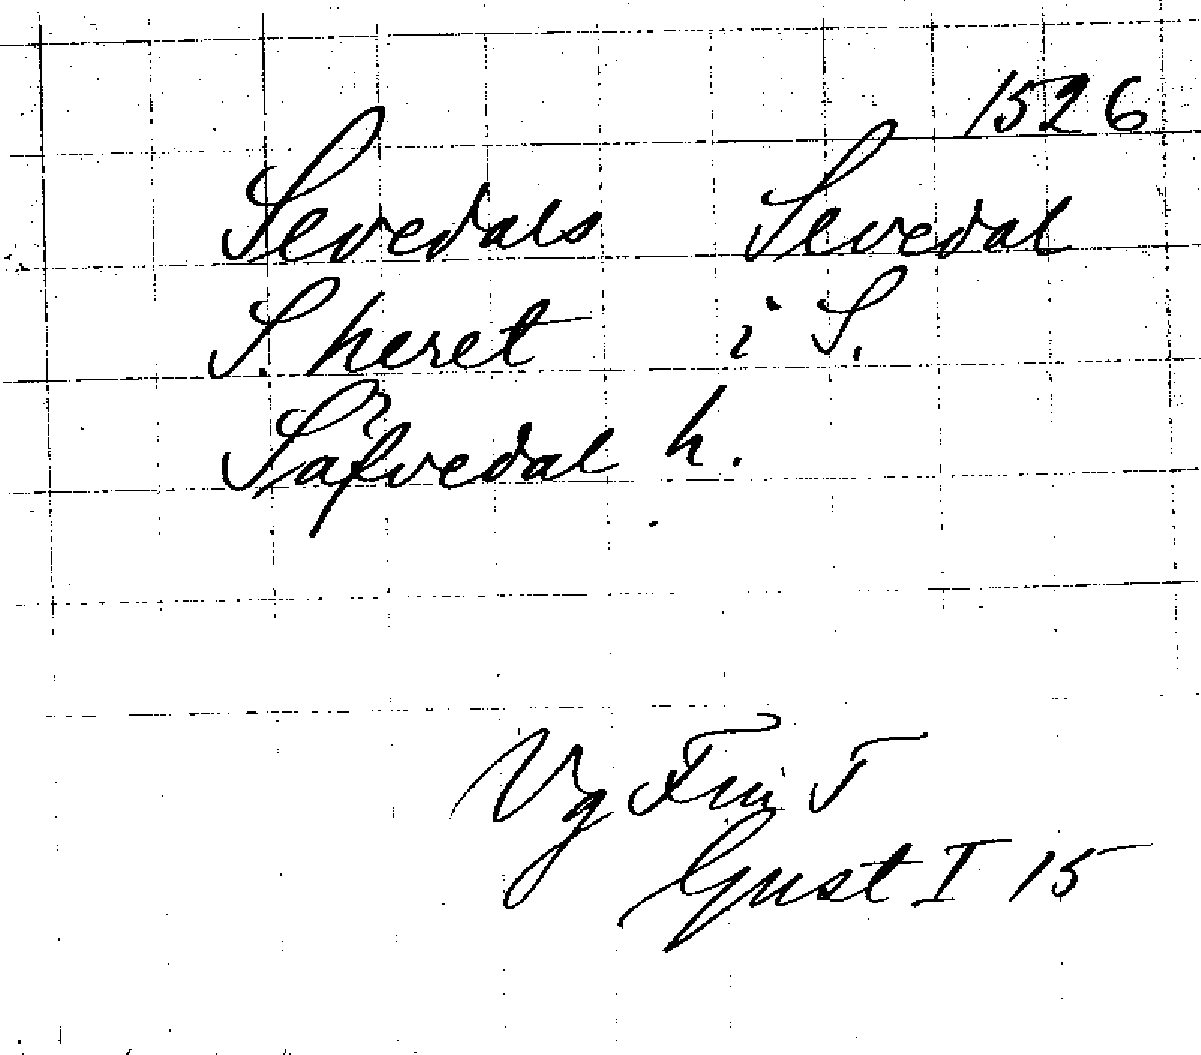 1526
Sevedals Sevedal
S. heret i S.
Säfvedal h.
Vg
Gust I 15